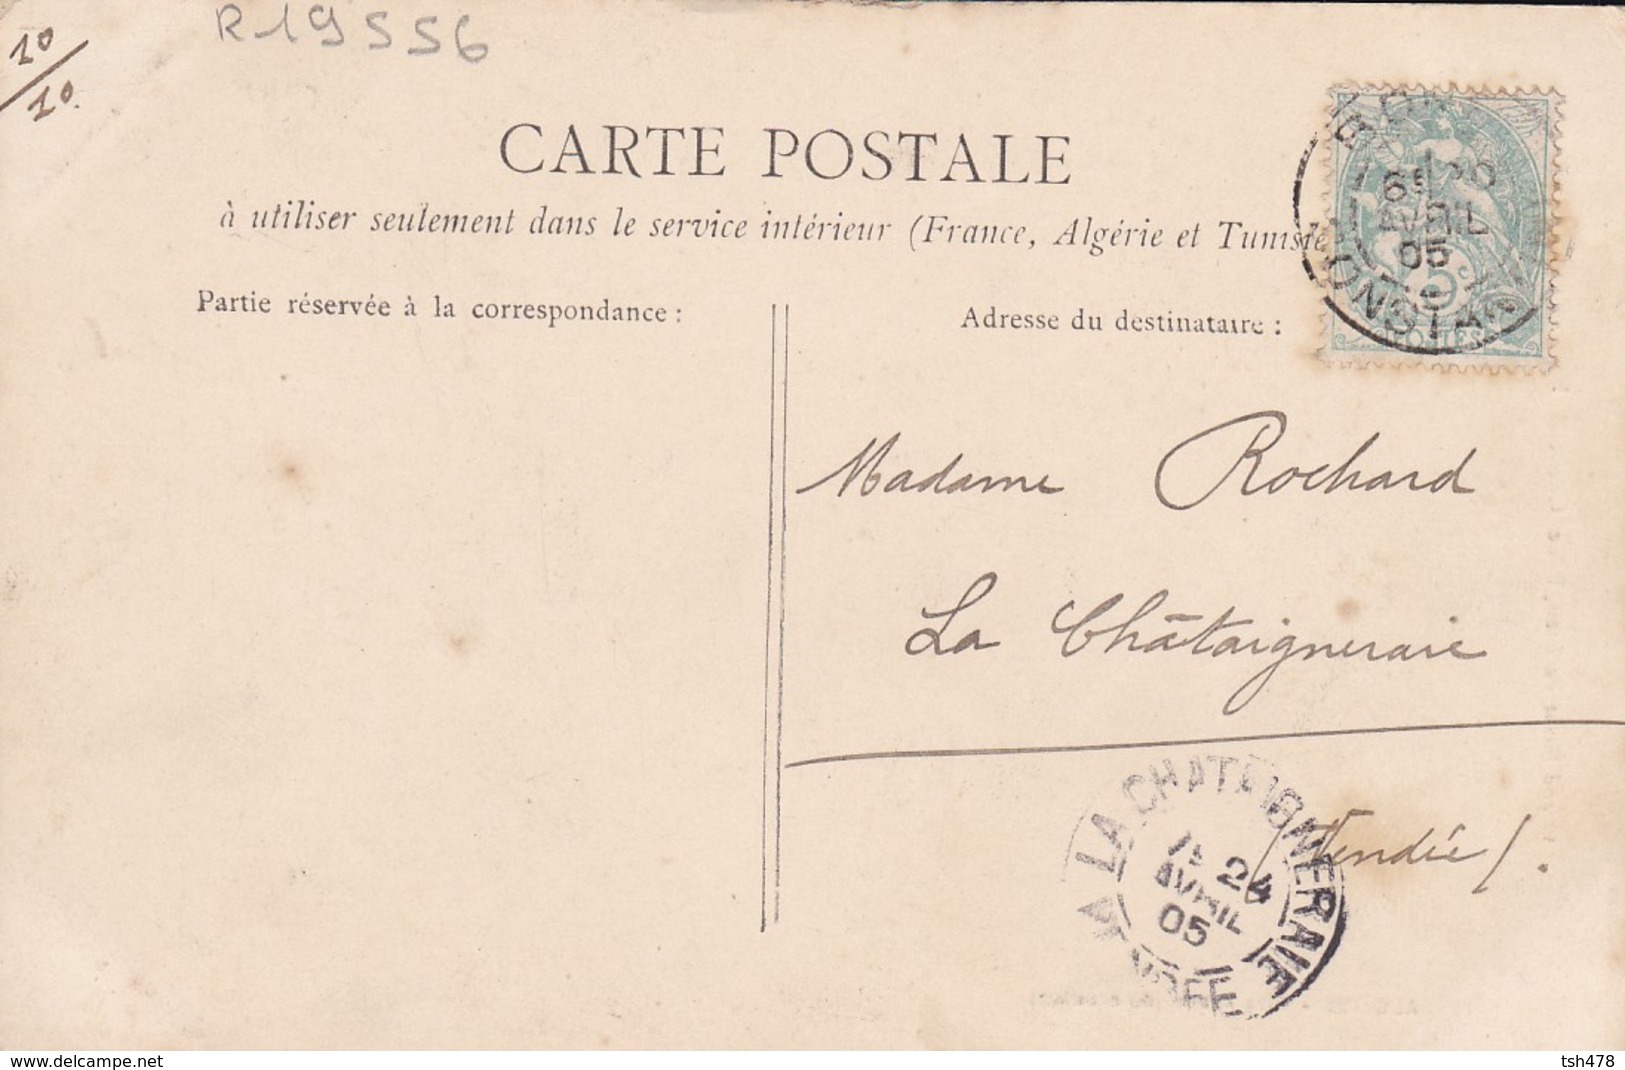 R19556
10/10.
CARTE POSTALE
à utiliser seulement dans le service intérieur (France, Algérie et Tunisie
Partie réservée à la correspondance :
Adresse du destinataire :
AVRIL
05
5c
POSTES
CONSTANTINE
Madame Rochard
La Châtaigneraie
(Vendée).
LA CHATAIGNERAIE
24
AVRIL
05
VENDÉE
www.delcampe.net
tsh478